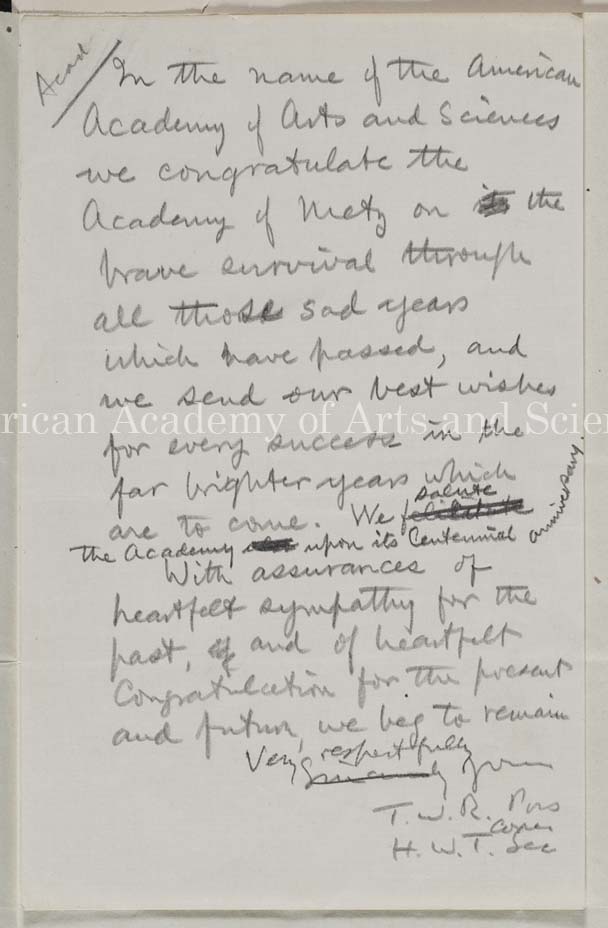 Acad
In the name of the American
Academy of Arts and Sciences
we congratulate the
Academy of Metz on its the
brave survival through
all those sad years
which have passed, and
we send our best wishes
for every success in the
far brighter years which
are to come. We felicitate salute
the Academy upon its Centennial anniversary.
With assurances of
heartfelt sympathy for the
past, of and of heartfelt
Congratulation for the present
and future, we beg to remain
Very respectfully
yours
T. W. R. Pres
H. W. T. Sec
American Academy of Arts and Scien